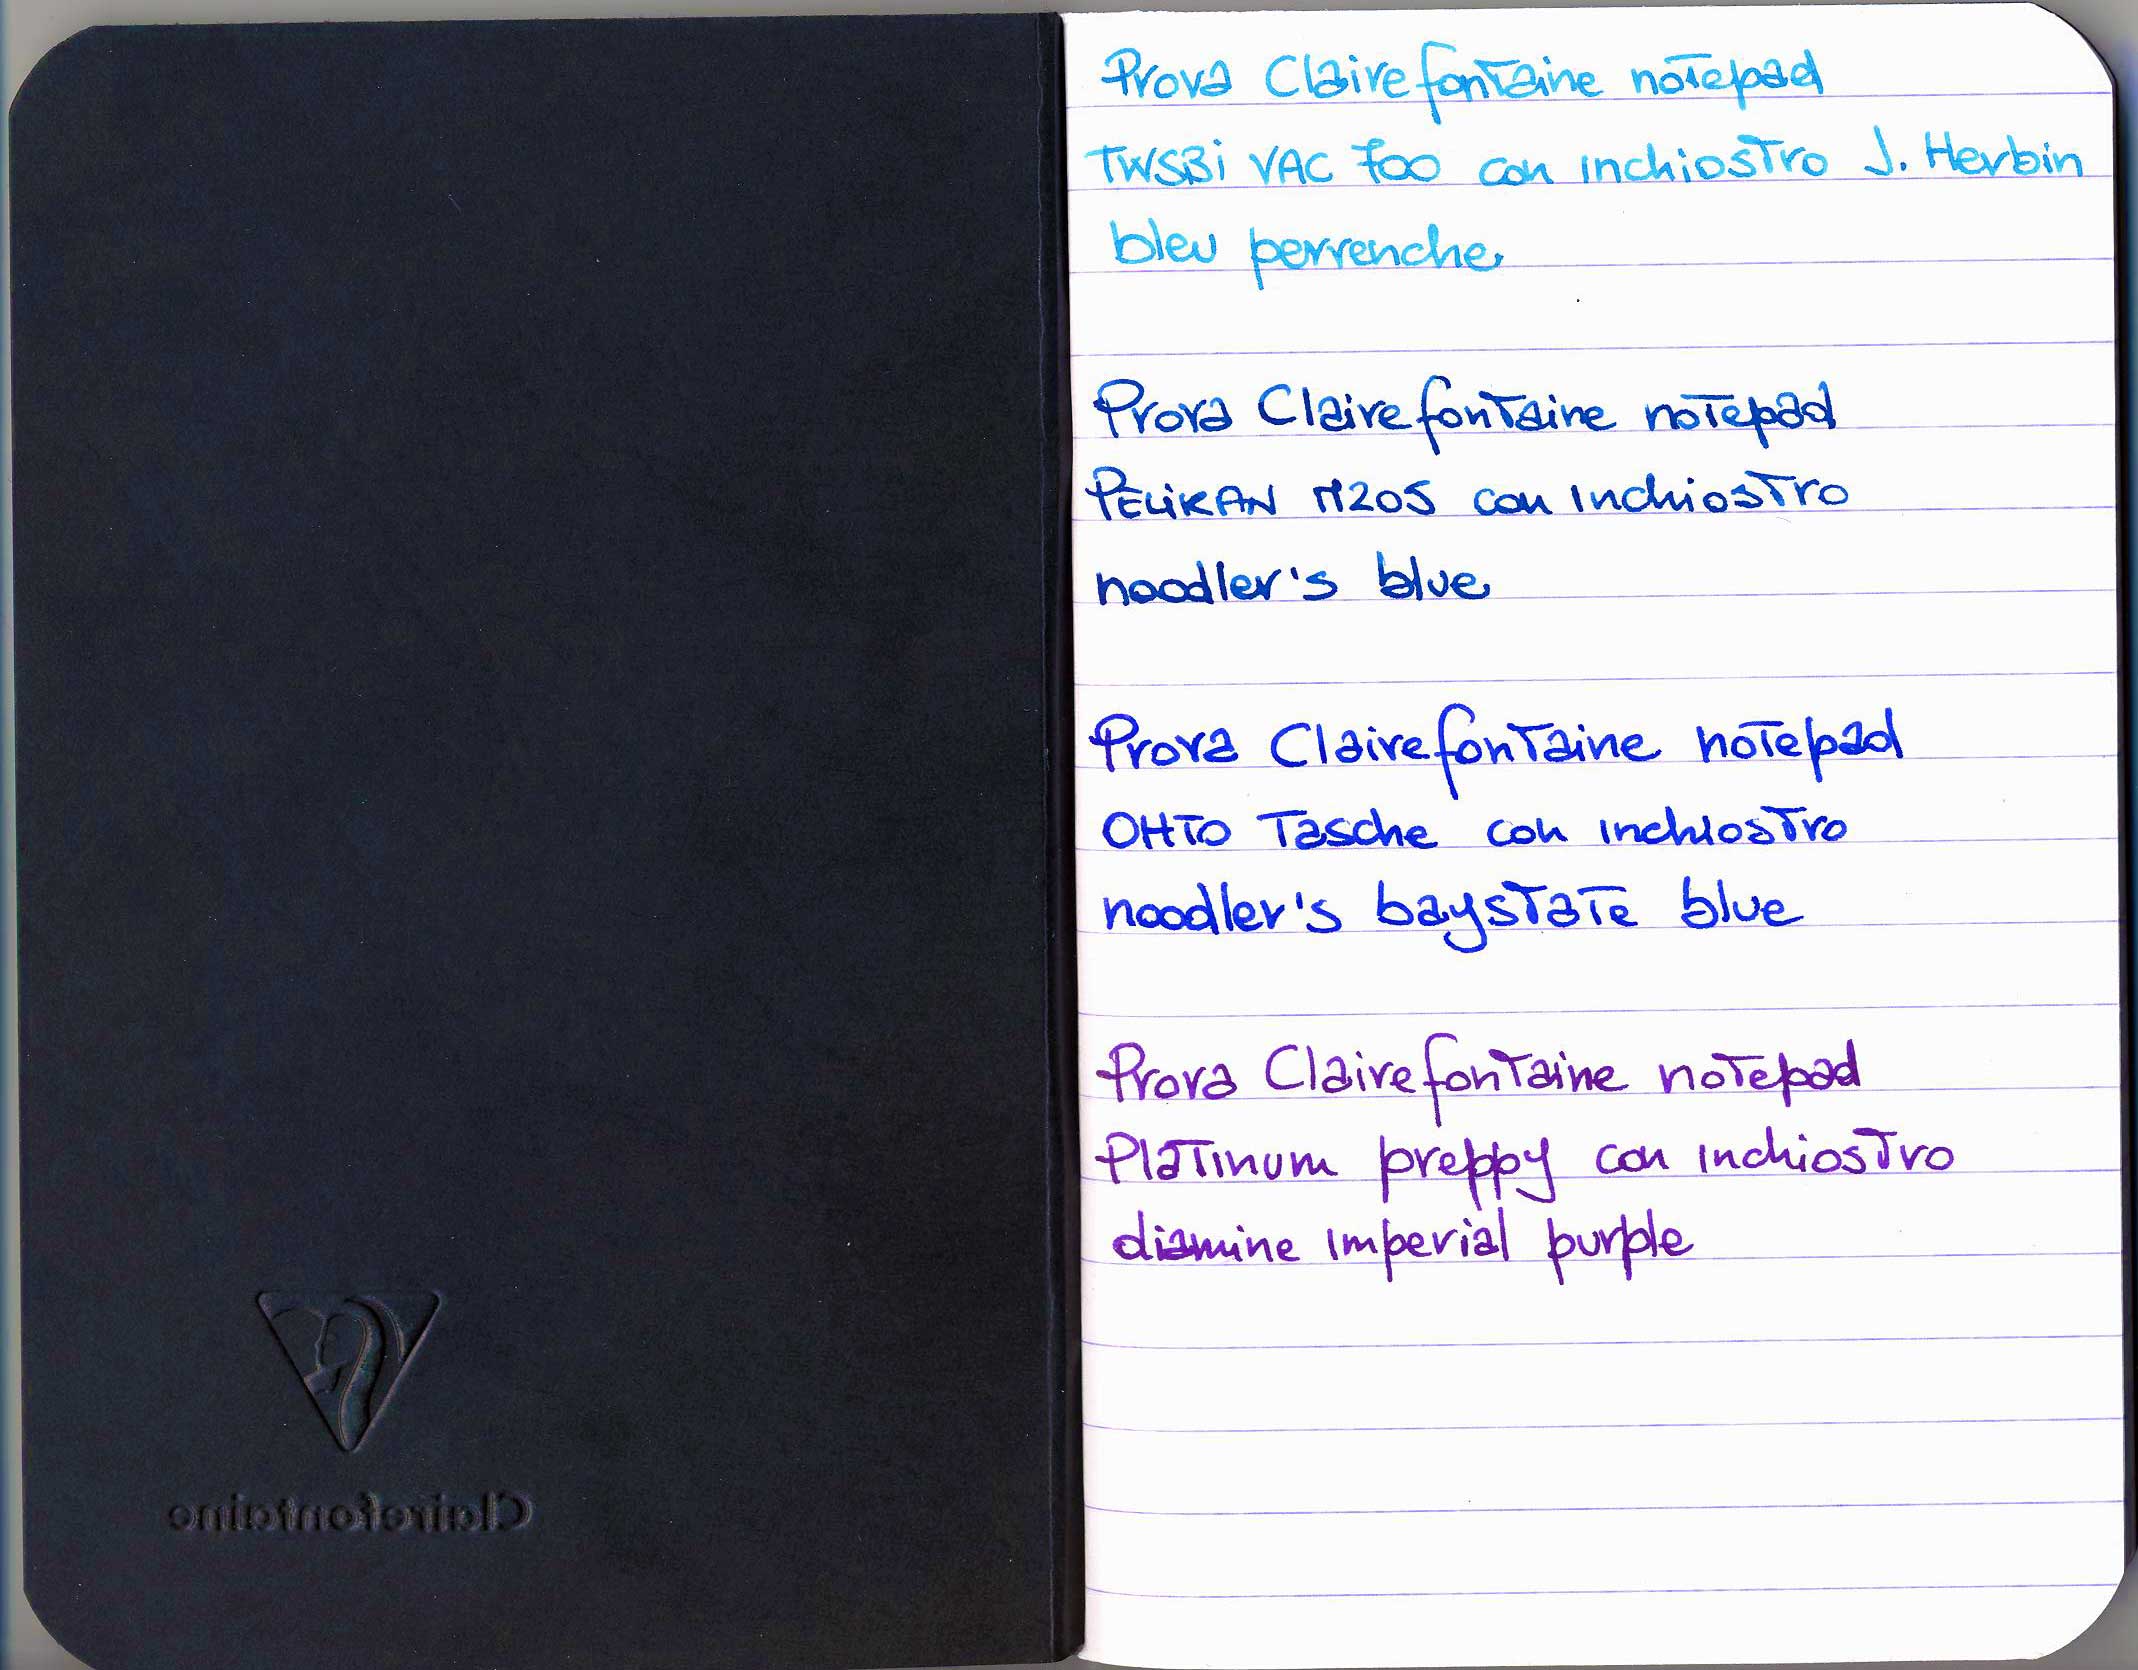 Prova Clairefontaine notepad
TWSBi VAC 700 con inchiostro J. Herbin
bleu perrenche
Prova Clairefontaine notepad
PELiKAN M205 con inchiostro
noodler's blue
Prova Clairefontaine notepad
OHTO Tasche con inchiostro
noodler's baystate blue
Prova Clairefontaine notepad
Platinum preppy con inchiostro
diamine imperial purple
Clairefontaine